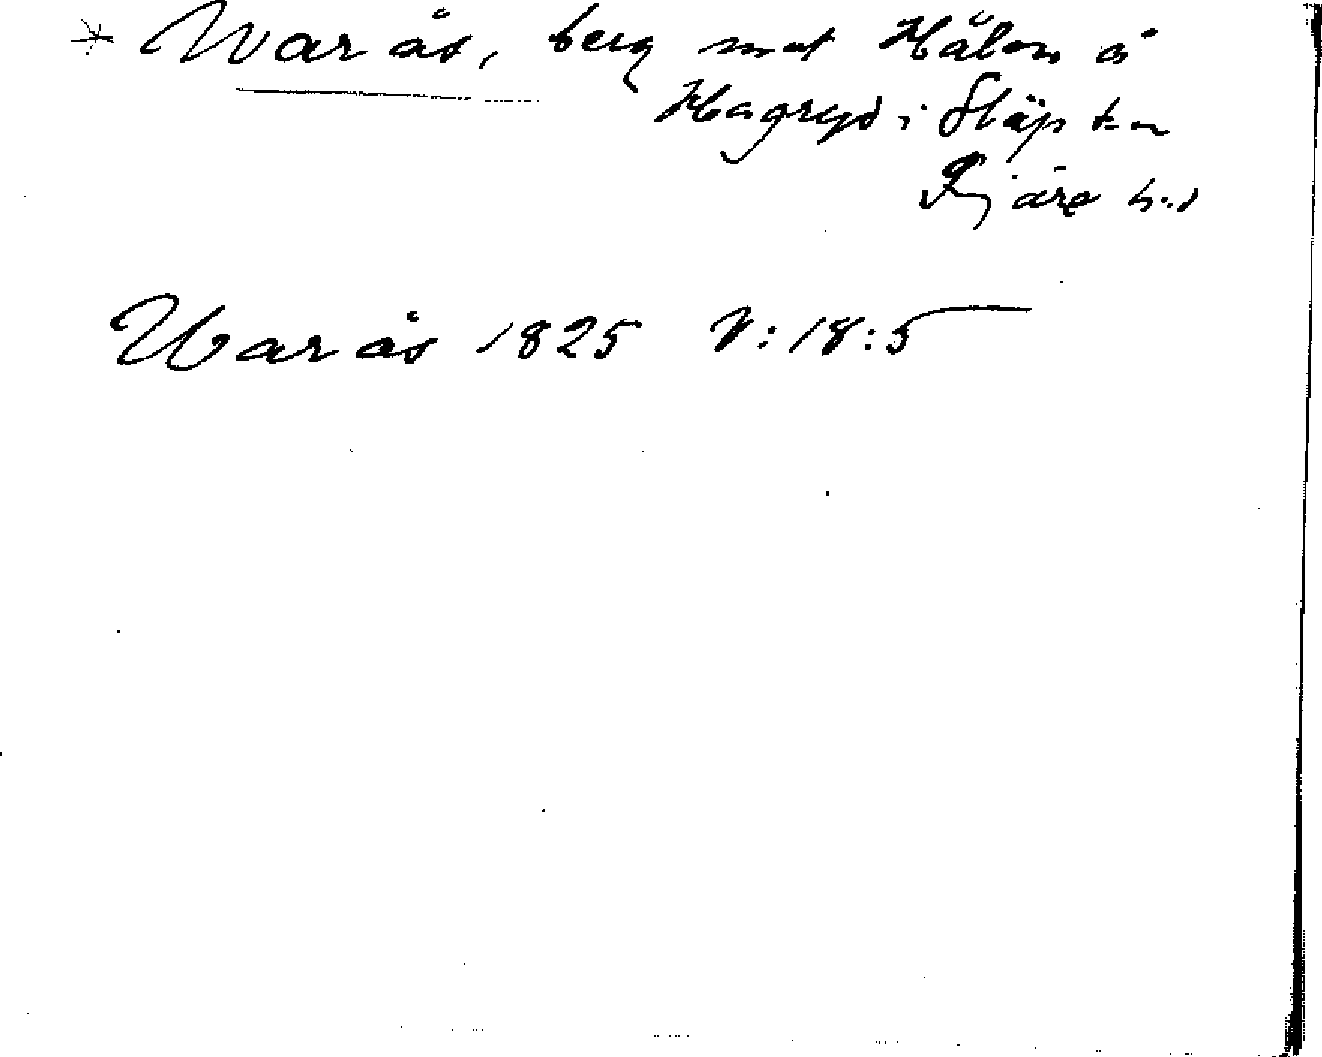 * Warås, berg mot Hålan å
Hagryd i Släp sn
Fjäre hd
Warås 1825 V:18:5